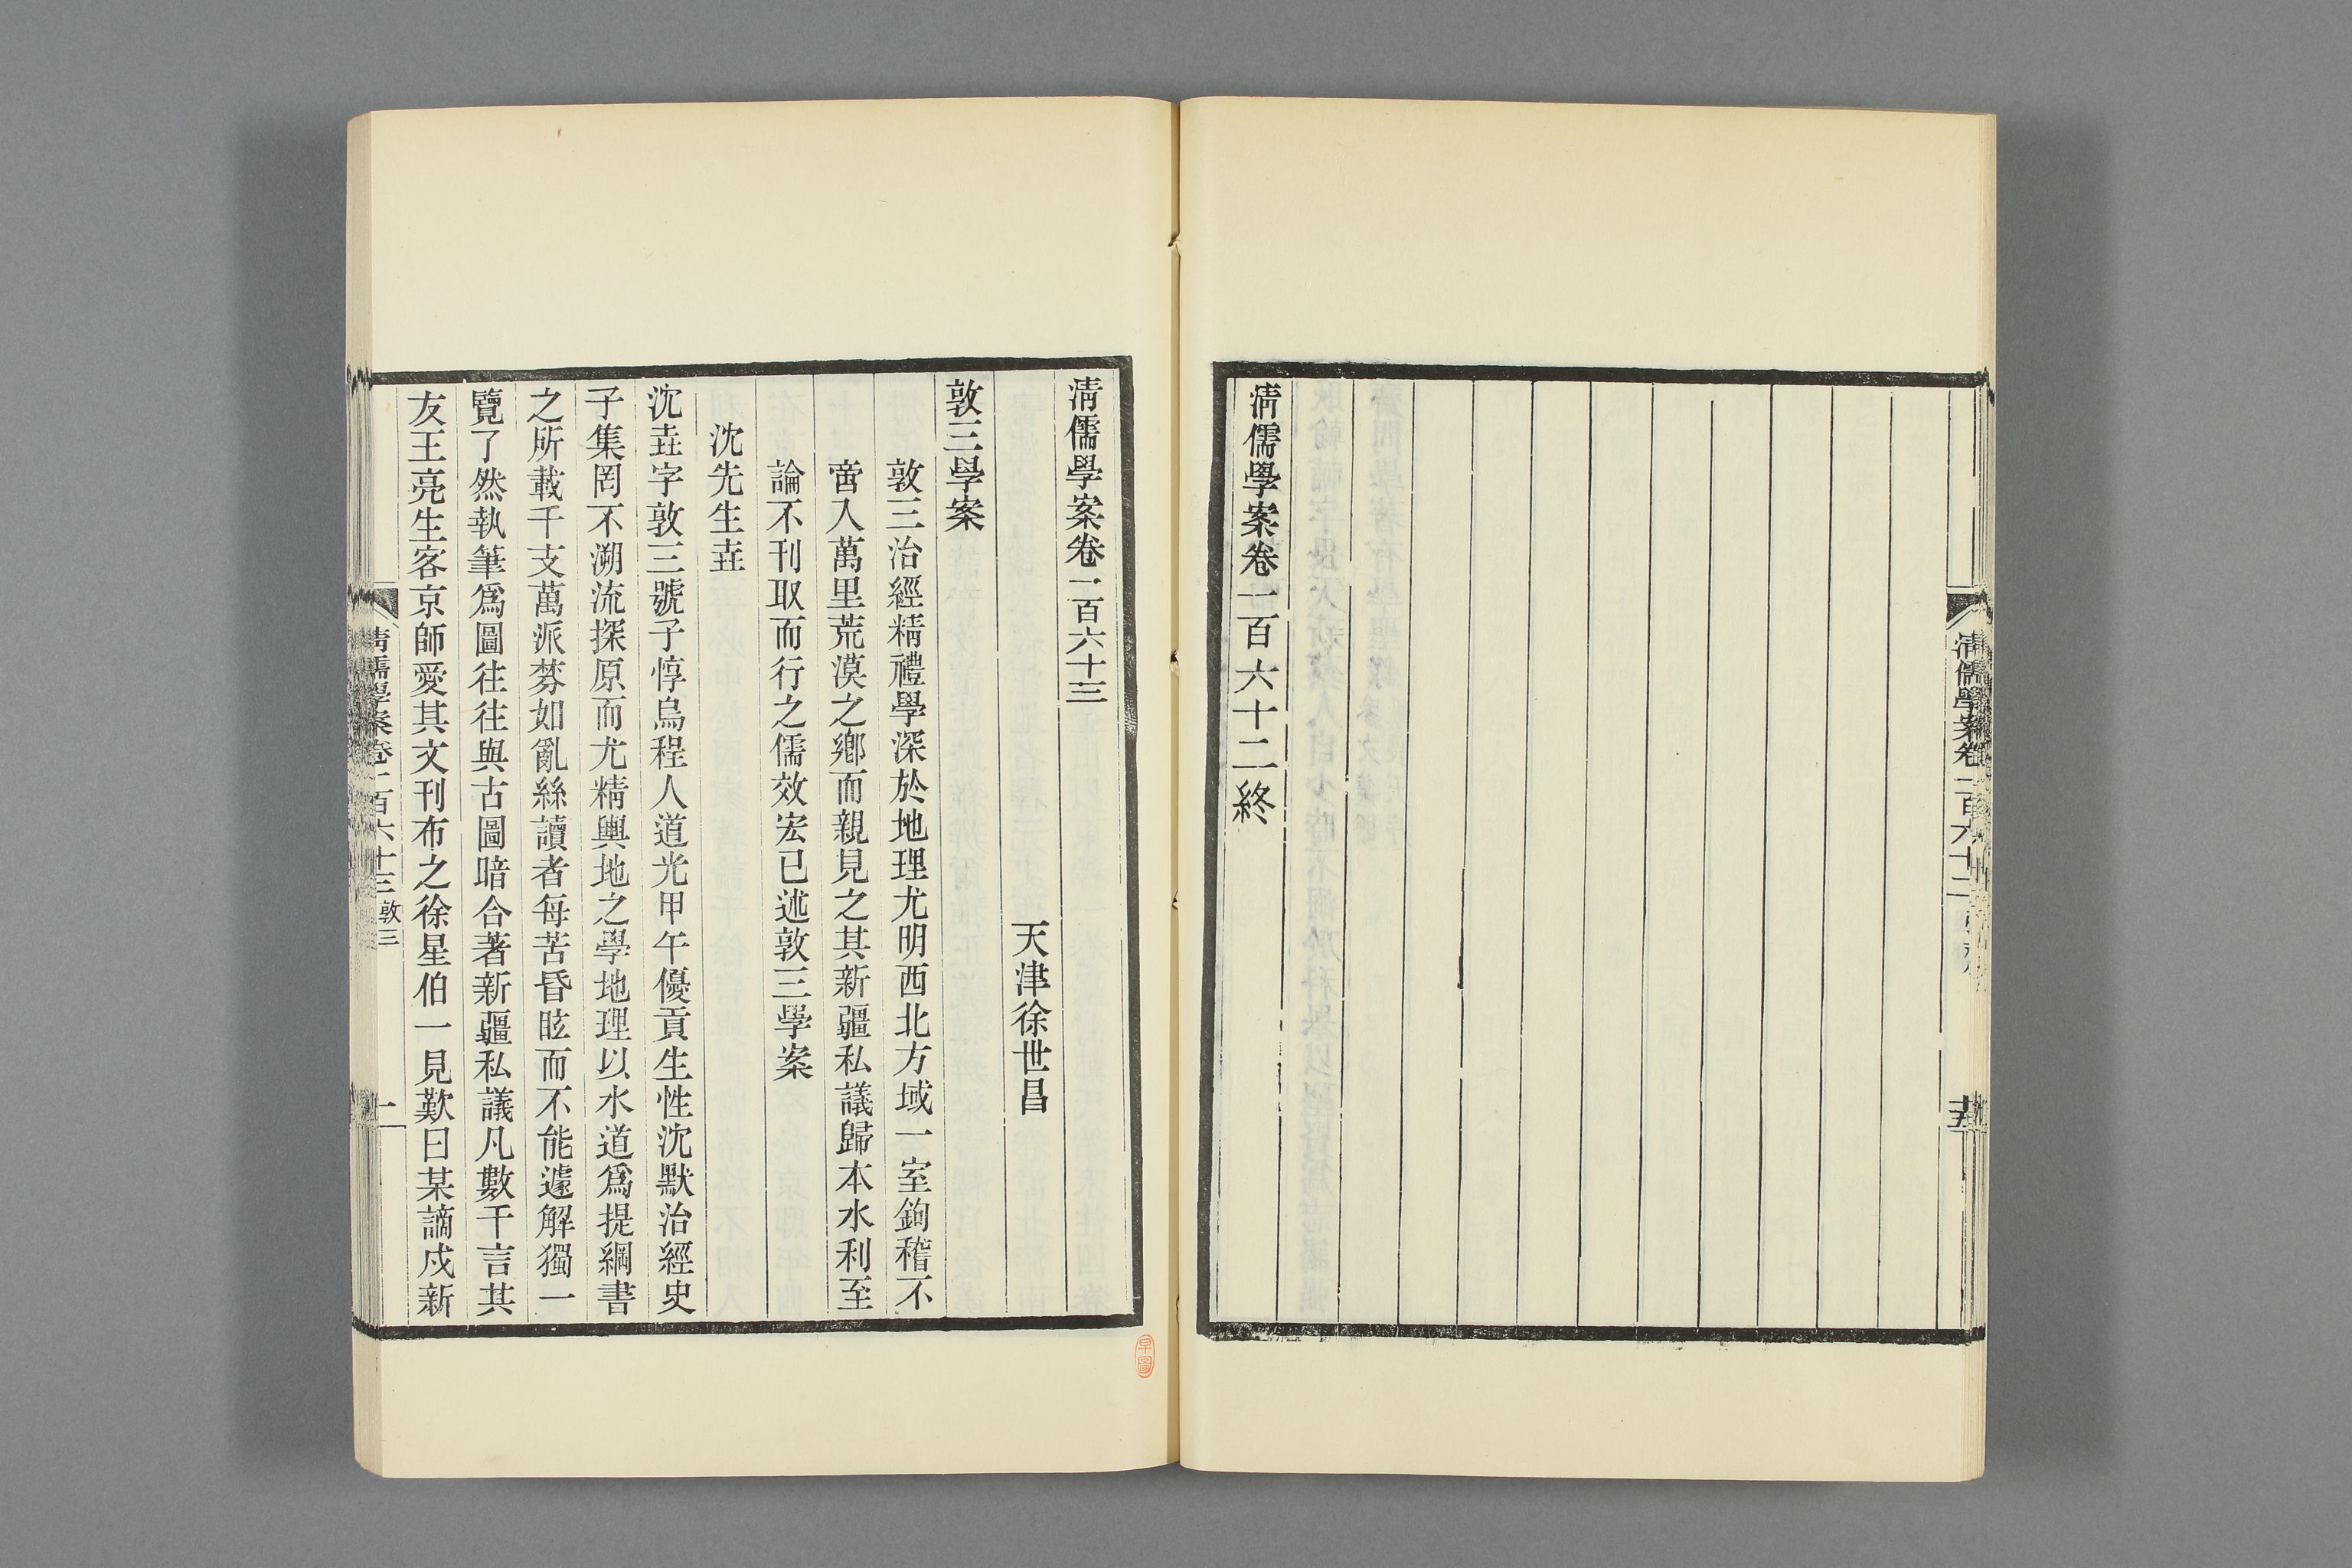 清儒學案卷一百六十二終
清儒學案卷一百六十二
清儒學案卷一百六十三
天津徐世昌
敦三學案
敦三治經精禮學深於地理尤明西北方域一室鉤稽不
啻入萬里荒漠之鄉而親見之其新疆私議歸本水利至
論不刊取而行之儒效宏已述敦三學案
沈先生垚
沈垚字敦三號子惇烏程人道光甲午優貢生性沈默治經史
子集罔不溯流探原而尤精輿地之學地理以水道爲提綱書
之所載千支萬派棼如亂絲讀者每苦昏眩而不能遽解獨一
覽了然執筆爲圖往往與古圖暗合著新疆私議凡數千言其
友王亮生客京師愛其文刊布之徐星伯一見歎曰某謫戍新
清儒學案卷一百六十三 敦三
一